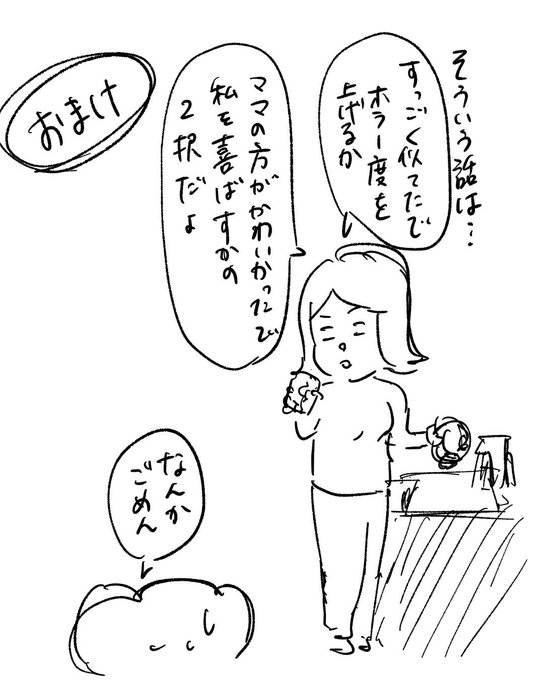 おまけ
そういう話は…
すっごく似てたで
ホラー度を
上げるか
ママの方がかわいかったで
私を喜ばすかの
2択だよ
なんか
ごめん